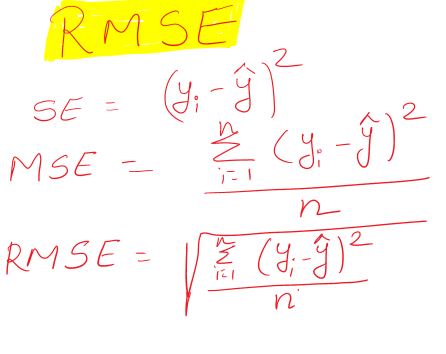 RMSE
SE = (yᵢ - ŷ)²
MSE = \frac{\sum_{i=1}^{n} (yᵢ - ŷ)²}{n}
RMSE = \sqrt{\frac{\sum_{i=1}^{n} (yᵢ - ŷ)²}{n}}